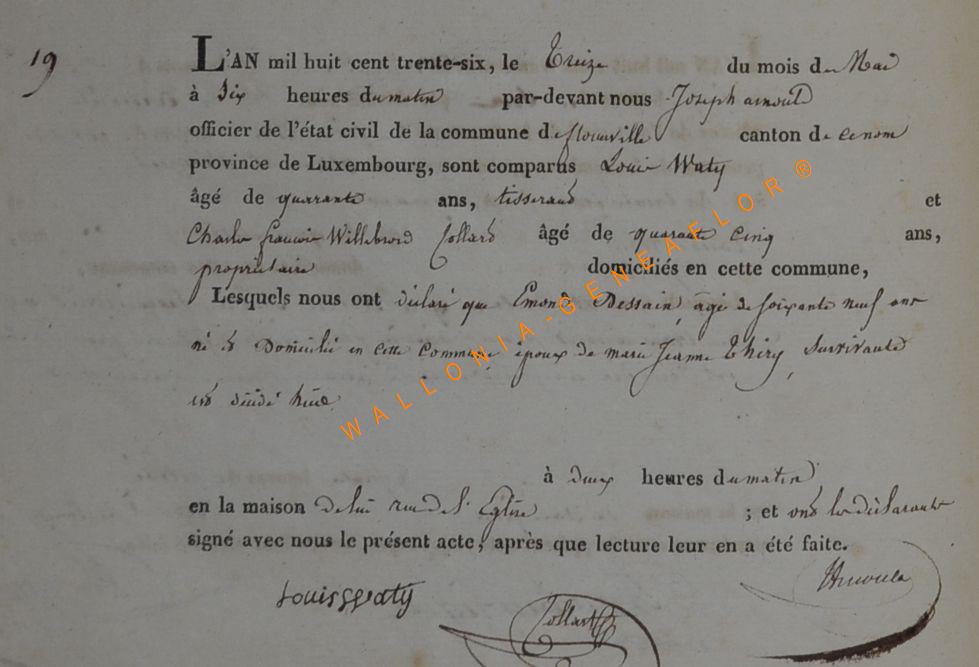 19
L'AN mil huit cent trente-six, le Treize du mois de Mai
à Dix heures du matin par-devant nous Joseph arnould
officier de l'état civil de la commune de florenville canton de ce nom
province de Luxembourg, sont comparus Louis Waty
âgé de quarante ans, tisserand et
Charles françois Willebrord Collard âgé de quarante cinq ans,
propriétaire domiciliés en cette commune,
Lesquels nous ont déclaré que Emond Dessain, âgé de soixante neuf ans
né et Domicilié en cette commune, époux de marie Jeanne thiry, survivante
est décédé hier
à deux heures du matin
en la maison de lui rue de l'Eglise ; et ont les déclarants
signé avec nous le présent acte, après que lecture leur en a été faite.
Louis Waty
Collard
WALLONIA-GENEAFLOR®